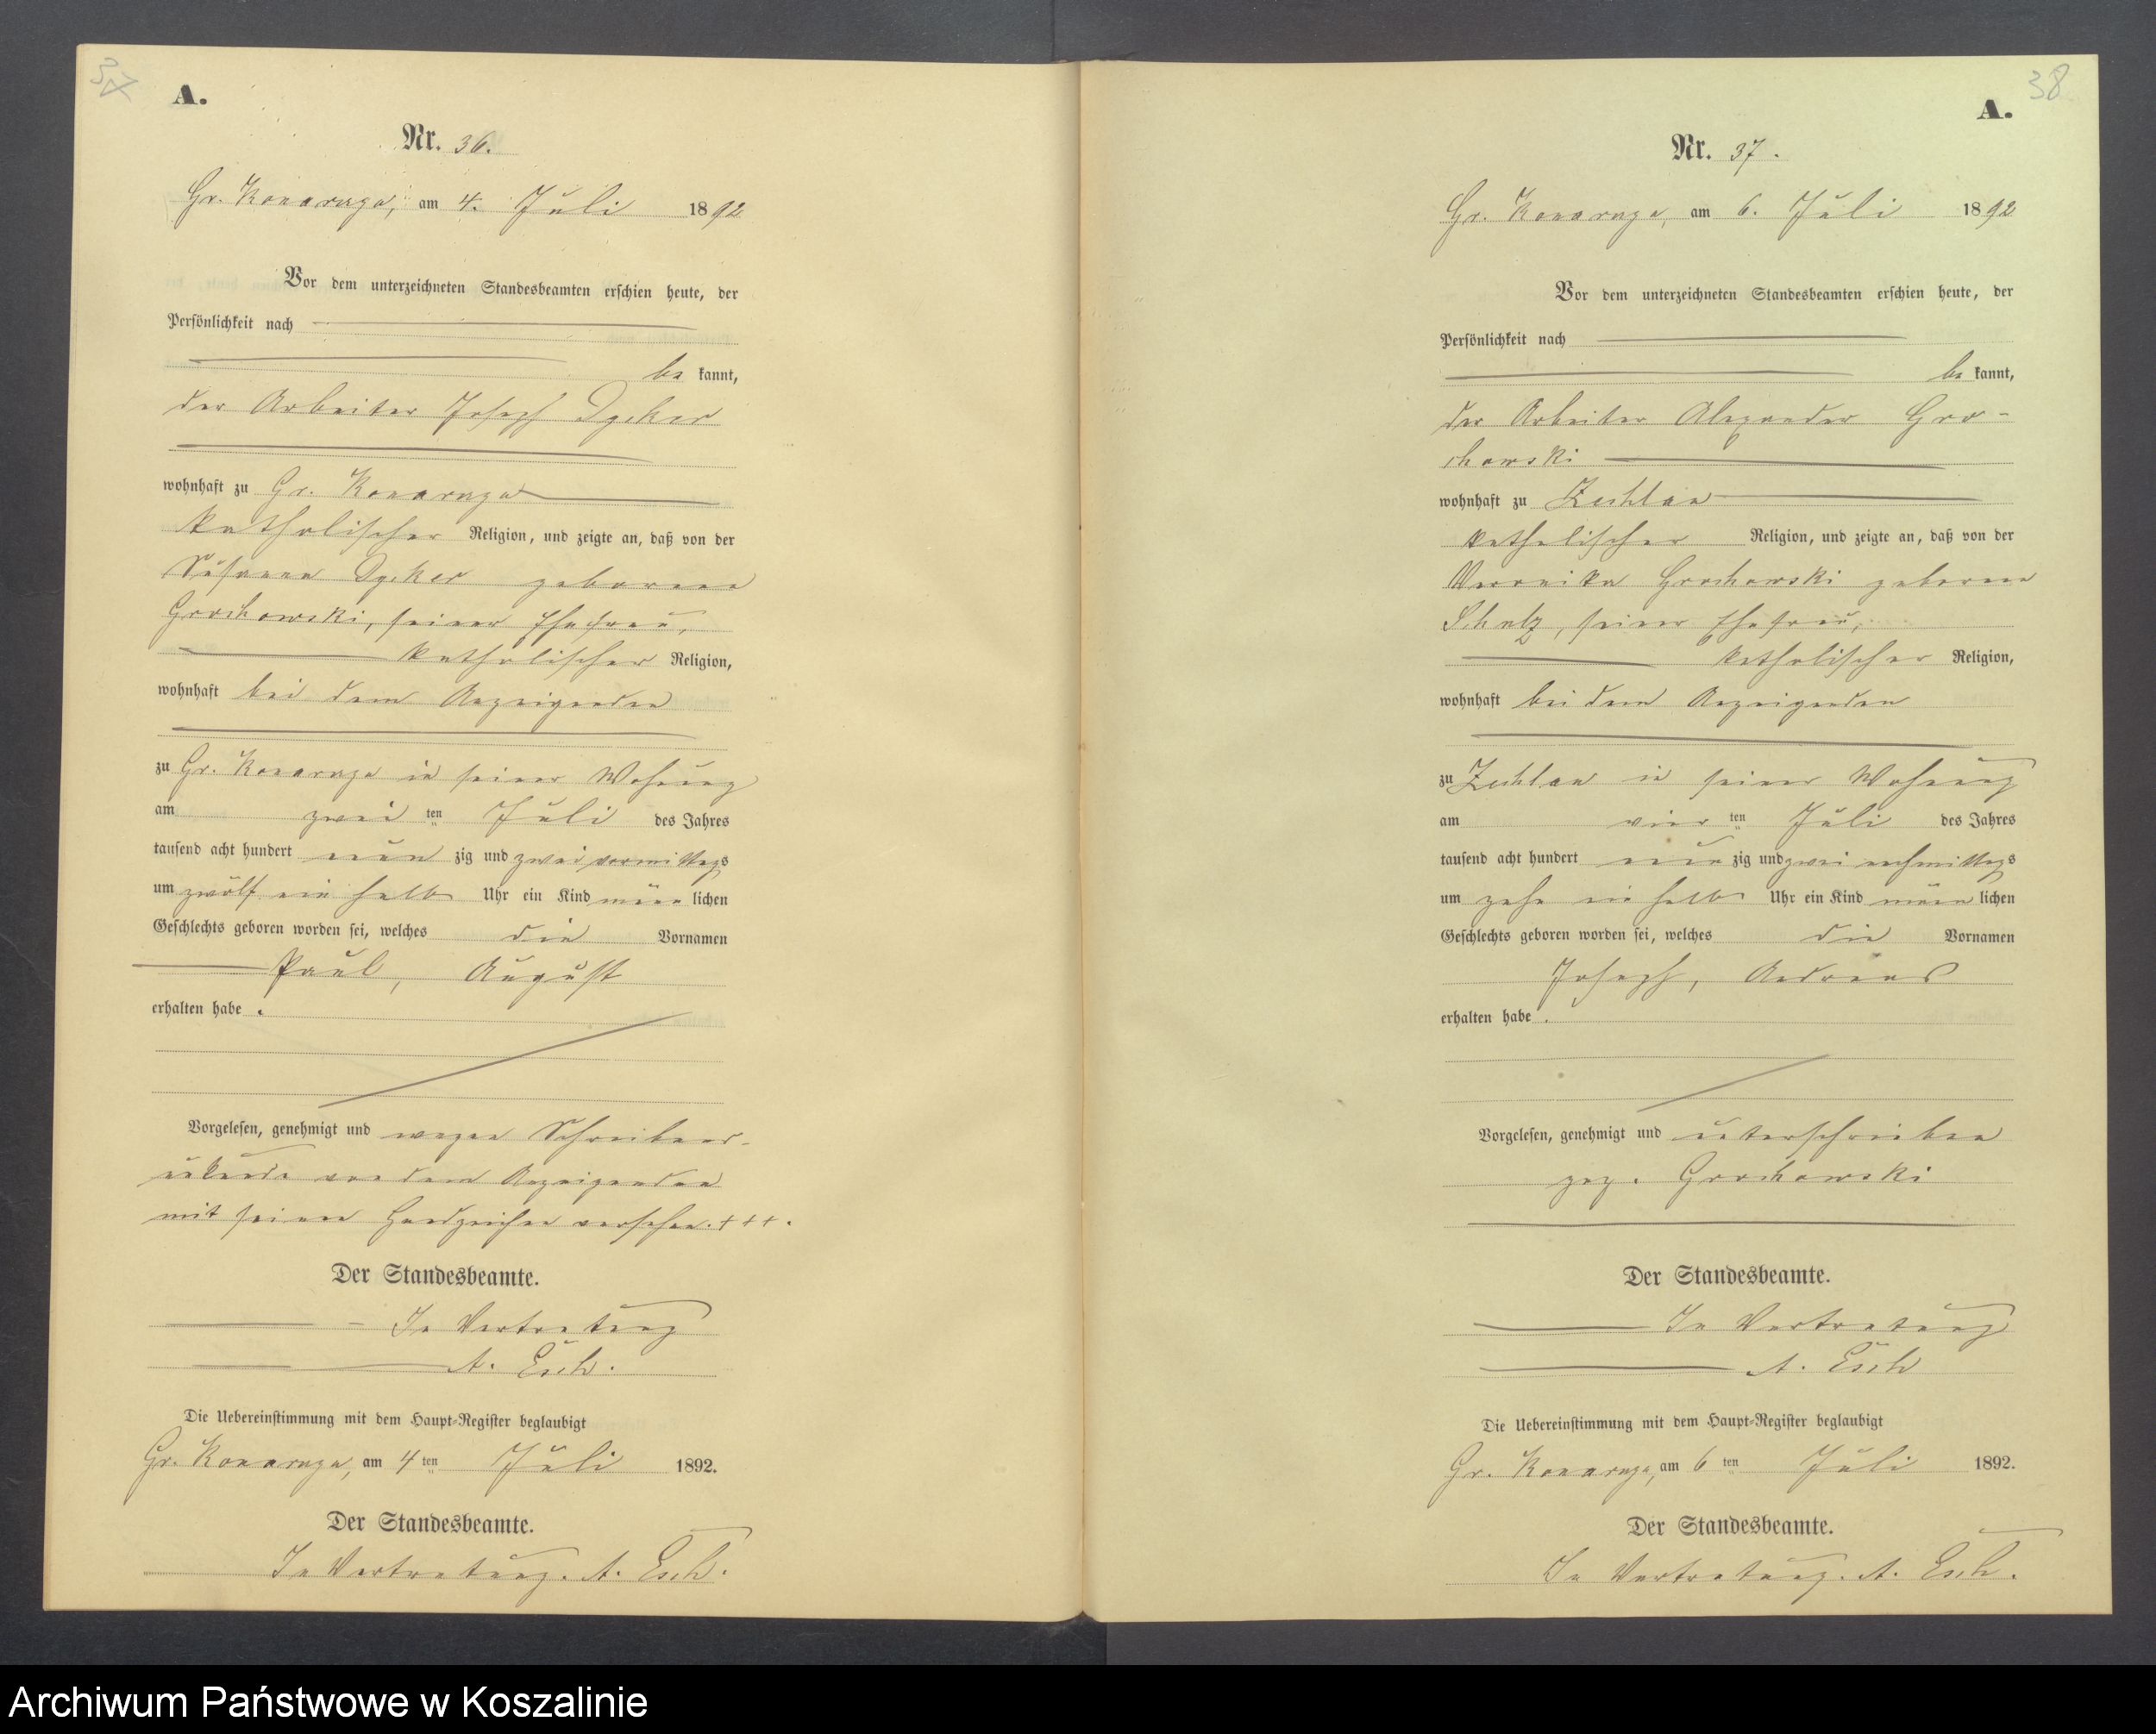 37
A.
Nr. 36.
Gr. Konarzyn, am 4. Juli 1892
Vor dem unterzeichneten Standesbeamten erschien heute, der
Persönlichkeit nach
be kannt,
der Arbeiter Joseph
wohnhaft zu Gr. Konarzyn
katholischer Religion, und zeigte an, daß von der
Susanna geborene
Grochowski, seiner Ehefrau,
katholischer Religion,
wohnhaft bei dem Anzeigenden
zu Gr. Konarzyn in seiner Wohnung
am zwei ten Juli des Jahres
tausend acht hundert neun zig und zwei vormittags
um zwölf ein halb Uhr ein Kind männ lichen
Geschlechts geboren worden sei, welches die Vornamen
Paul, August
erhalten habe.
Vorgelesen, genehmigt und wegen Schreibens-
unkunde von dem Anzeigenden
mit seinen Handzeichen versehen. +++.
Der Standesbeamte.
In Vertretung
A. Esch.
Die Uebereinstimmung mit dem Haupt-Register beglaubigt
Gr. Konarzyn, am 4 ten Juli 1892.
Der Standesbeamte.
In Vertretung. A. Esch.
38
A.
Nr. 37.
Gr. Konarzyn, am 6. Juli 1892
Vor dem unterzeichneten Standesbeamten erschien heute, der
Persönlichkeit nach
be kannt,
der Arbeiter Alexander Gro-
chowski
wohnhaft zu Zechlau
katholischer Religion, und zeigte an, daß von der
Veronika Grochowski geborene
Schulz, seiner Ehefrau,
katholischer Religion,
wohnhaft bei dem Anzeigenden
zu Zechlau in seiner Wohnung
am vier ten Juli des Jahres
tausend acht hundert neun zig und zwei nachmittags
um zehn ein halb Uhr ein Kind männ lichen
Geschlechts geboren worden sei, welches die Vornamen
Joseph, Andreas
erhalten habe.
Vorgelesen, genehmigt und unterschrieben
gez. Grochowski
Der Standesbeamte.
In Vertretung
A. Esch
Die Uebereinstimmung mit dem Haupt-Register beglaubigt
Gr. Konarzyn, am 6 ten Juli 1892.
Der Standesbeamte.
In Vertretung. A. Esch.
Archiwum Państwowe w Koszalinie